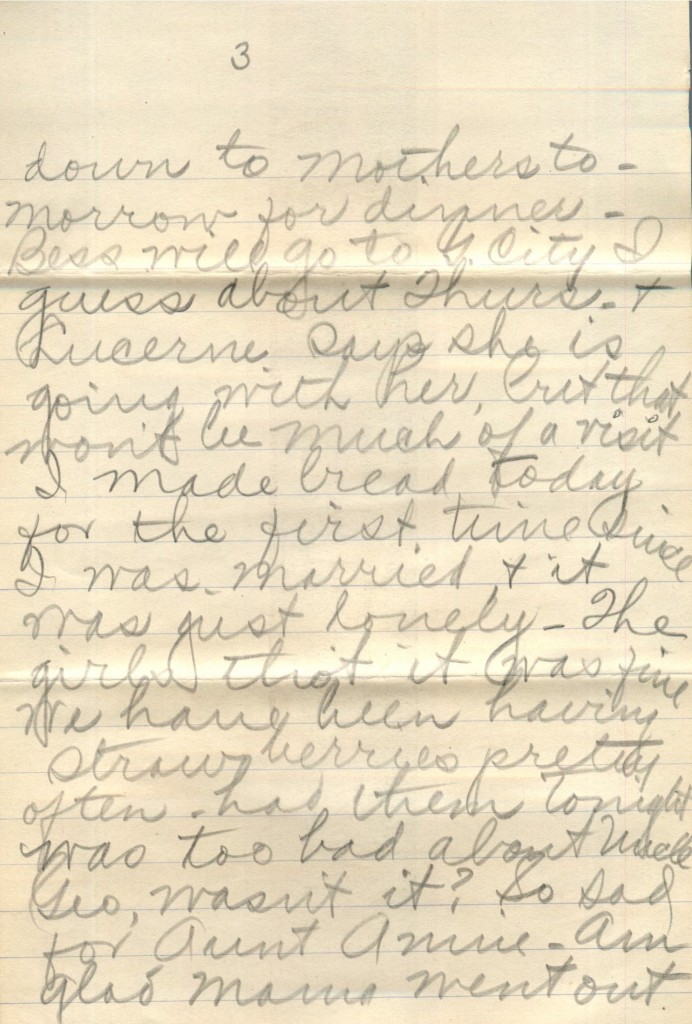 3
down to Mothers to-
morrow for dinner -
Bess will go to City I
guess about Thurs. +
Lucerne says she is
going with her, but that
won't be much of a visit
I made bread today
for the first time since
I was married + it
was just lovely - The
girls thot it was fine
We have been having
strawberries pretty
often - had them tonight
was too bad about Uncle
Geo, wasn't it? So sad
for Aunt Annie - Am
glad Mama went out